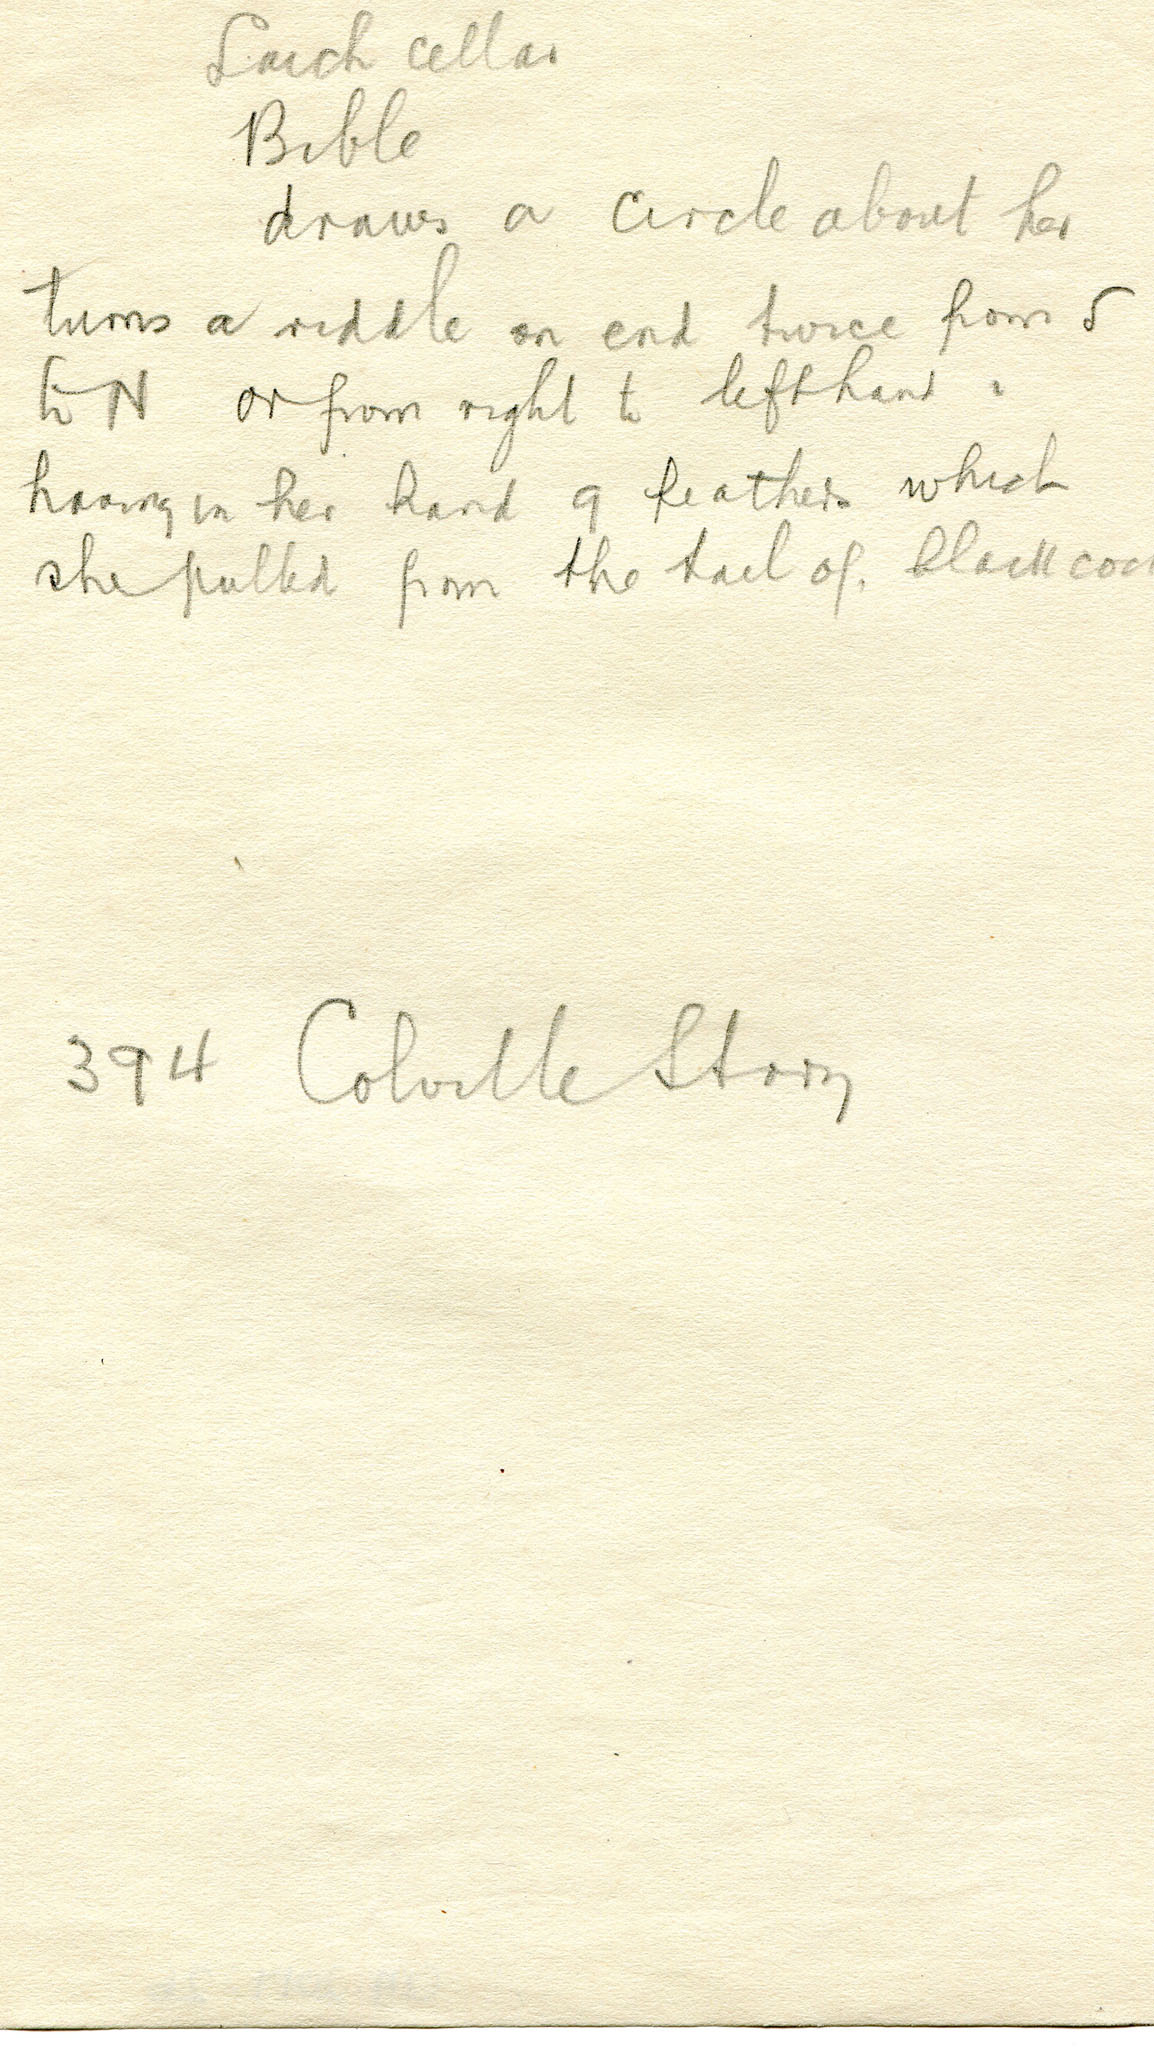 cellar
Bible
draws a circle about her
turns a riddle on end twice from S
to N or from right to left hand
having in her hand 9 feathers which
she pulled from the tail of black cock
394 Colville Story